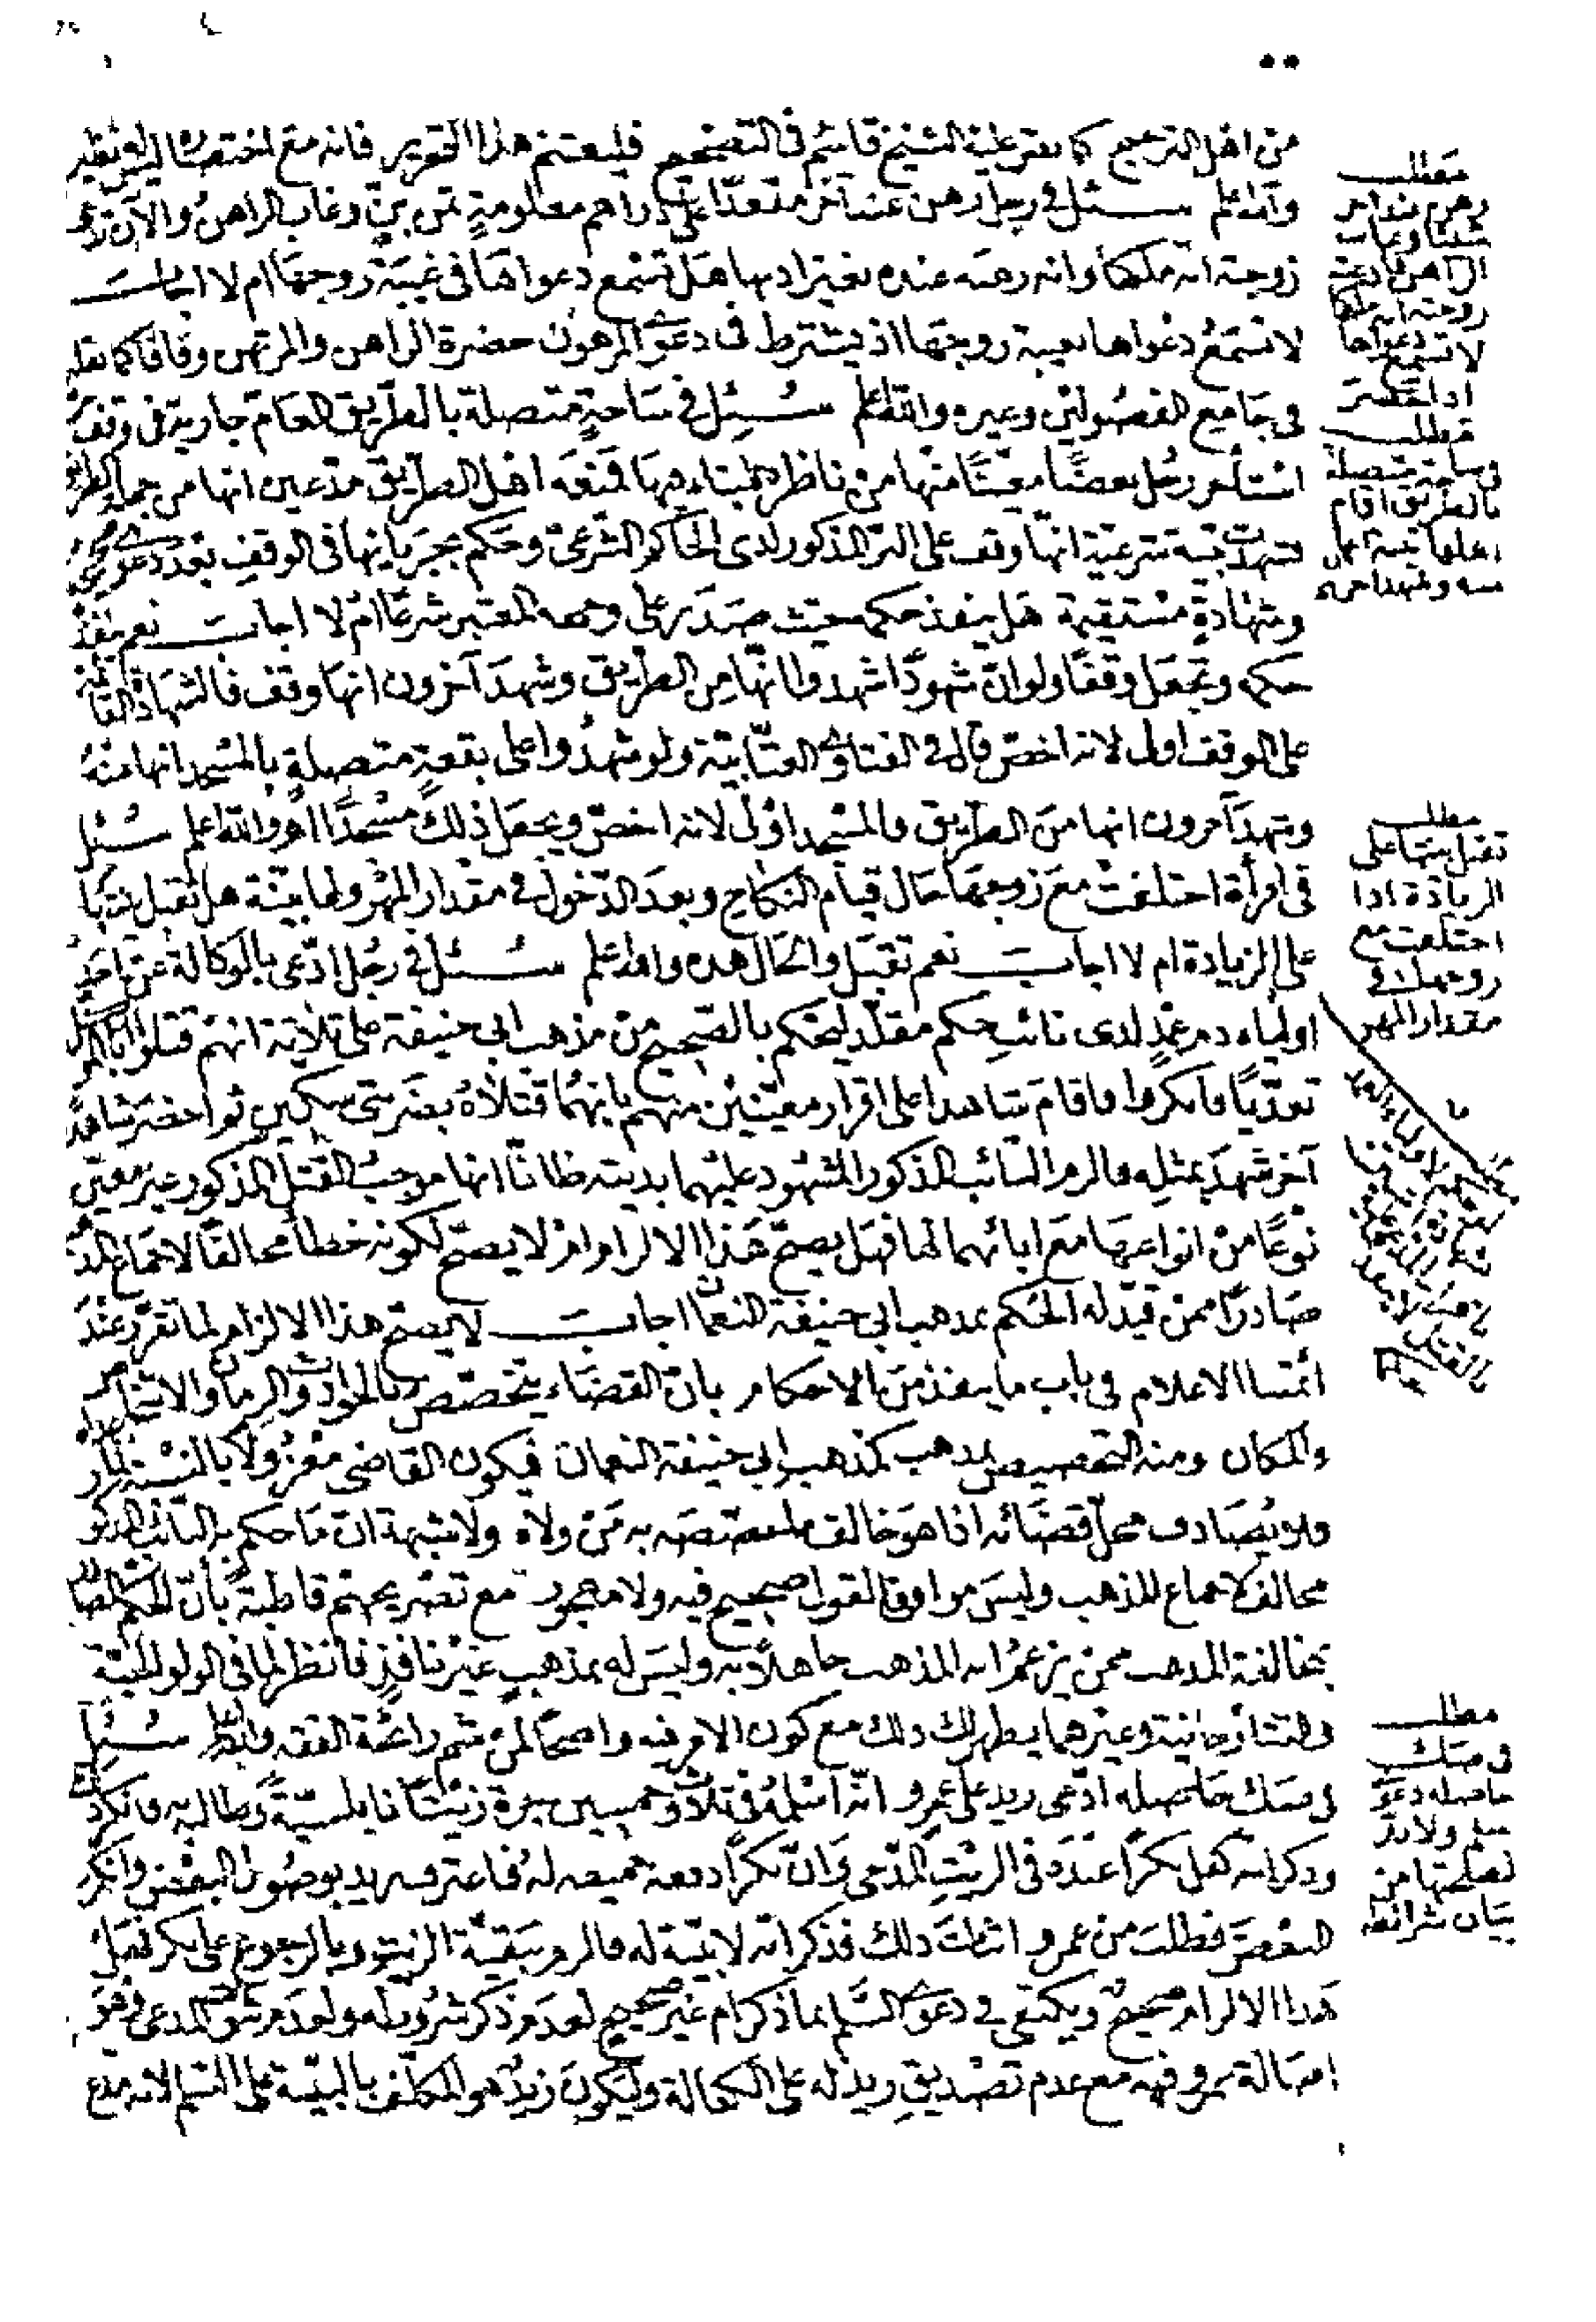 من اهل الترجيح كما نص عليه الشيخ قاسم في التصحيح فليغتنم هذا التحرير فانه مع اختصاره ليس له نظير
والله اعلم سئل في رجل رهن عند آخر متعدا على دراهم معلومة ثمن بن وغاب الراهن والآن تدعي
زوجته انه ملكها وانه رهنه عنده بغير اذنها هل تسمع دعواها في غيبة زوجها ام لا اجاب
لا تسمع دعواها بغيبة زوجها اذ يشترط في دعوى المرهون حضرة الراهن والمرتهن وفاقا كما نقله
في جامع الفصولين وغيره والله اعلم سئل في ساحة متصلة بالطريق العام جارية في وقف
استأجر رجل بعضا معينا منها من ناظره لبناء فيها فمنعه اهل الطريق مدعين انها من جملة الطريق
فشهدت بينة شرعية انها وقف على البر المذكور لدى الحاكم الشرعي وحكم بجريانها في الوقف بعد دعوى صحيحة
وشهادة مستقيمة هل ينفذ حكمه حيث صدر على وجهه المعتبر شرعا ام لا اجاب نعم ينفذ
حكمه وتجعل وقفا ولو ان شهودا شهدوا انها من الطريق وشهد آخرون انها وقف فالشهادة القائمة
على الوقف اولى لانه اخص قال في الفتاوى العتابية ولو شهدوا على بقعة متصلة بالمسجد انها منه
وشهد آخرون انها من الطريق فالمسجد اولى لانه اخص ويجعل ذلك مسجدا اهـ والله اعلم سئل
في امرأة اختلفت مع زوجها حال قيام النكاح وبعد الدخول في مقدار المهر ولها بينة هل تقبل بينتها
على الزيادة ام لا اجاب نعم تقبل والحال هذه والله اعلم سئل في رجل ادعى بالوكالة عن احد
اولياء دم عمد لدى نائب حكم مقلد ليحكم بالصحيح من مذهب ابي حنيفة على ثلاثة انهم قتلوا
تعديا فانكروا فاقام شاهدا على اقرار معينين منهم بانهما قتلاه بضربتي سكين ثم احضر شاهدا
آخر شهد بمثله فالزم النائب المذكور المشهود عليهما بديته ظانا انها موجب القتل المذكور غير معين
نوعا من انواعها مع ابائهما لها فهل يصح هذا الالزام ام لا يصح لكونه خطأ مخالفا لاجماع
صادرا ممن قيد له الحكم بمذهب ابي حنيفة النعمان اجاب لا يصح هذا الالزام لما تقرر عند
ائمتنا الاعلام في باب ما ينفذ من الاحكام بان القضاء يتخصص بالحوادث والزمان والاشخاص
والمكان ومنه التخصيص بمذهب كمذهب ابي حنيفة النعمان فيكون القاضي معزولا بالنسبة
فلا يصادف محل قضائه اذا هو خالف ما خصصه به من ولاه ولا شبهة ان ما حكم به النائب المذكور
مخالف لاجماع المذهب وليس موافقا لقول صحيح فيه ولا مهجور مع تصريحهم قاطبة بأن الحكم الصادر
بمخالفة المذهب ممن يزعم انه المذهب جاهلا به وليس له بمذهب غير نافذ فانظر لما في الولوالجية
والتتارخانية وغيرهما يظهر لك ذلك مع كون الامر فيه واضحا لمن شم رائحة الفقه والله اعلم سئل
في صك حاصله ادعى زيد على عمرو انه اسلمه في ثلاث وخمسين جرة زيتا نابلسية وطالبه فانكر
وذكر انه كفل بكرا عنده في الزيت المدعى وان بكرا دفعه جميعه له فاعترف زيد بوصول البعض وانكر
البعض فطلب من عمرو اثبات ذلك فذكر انه لا بينة له فالزم ببقية الزيت وبالرجوع على بكر فهل
هذا الالزام صحيح ويكتفى في دعوى السلم بما ذكر ام غير صحيح لعدم ذكر شروطه ولعدم ثبوت المدعى
اصالة عمرو فيه مع عدم تصديق زيد له على الكفالة وليكون زيد هو المكلف بالبينة على السلم لانه مدع
مطلب
رهن عند آخر
شيئا وغاب
الراهن فادعت
زوجته انه ملكها
لا تسمع دعواها
مطلب
في ساحة متصلة
بالطريق اقام
مطلب
تقبل بينتها على
الزيادة اذا
اختلفت مع
زوجها في
مقدار المهر
مطلب
في صك
حاصله دعوى
سلم ولا بد
لصحتها من
بيان شرائطه